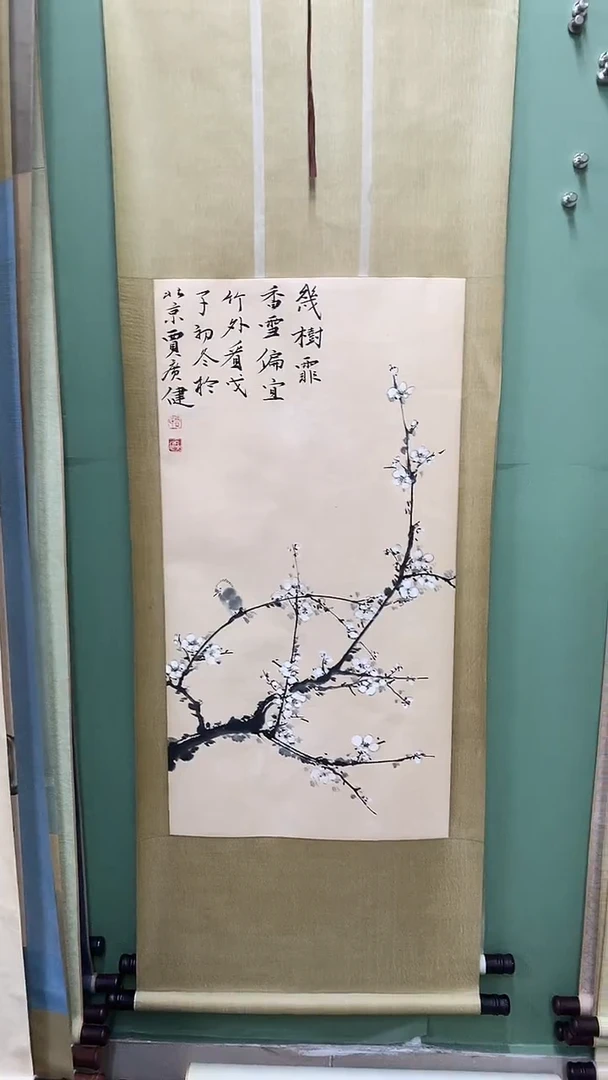 幾樹霏
香雪偏宜
竹外看戊
子初冬於
北京賈廣健